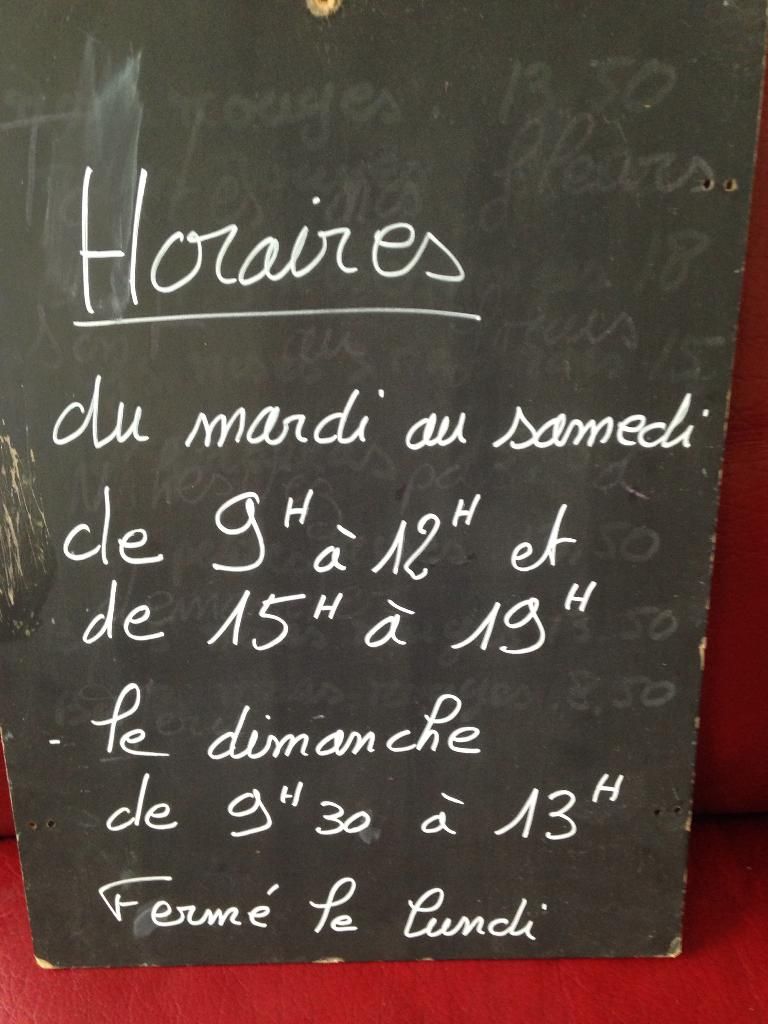 Horaires
du mardi au samedi
de 9H à 12H et
de 15H à 19H
- le dimanche
de 9H30 à 13H
Fermé le lundi